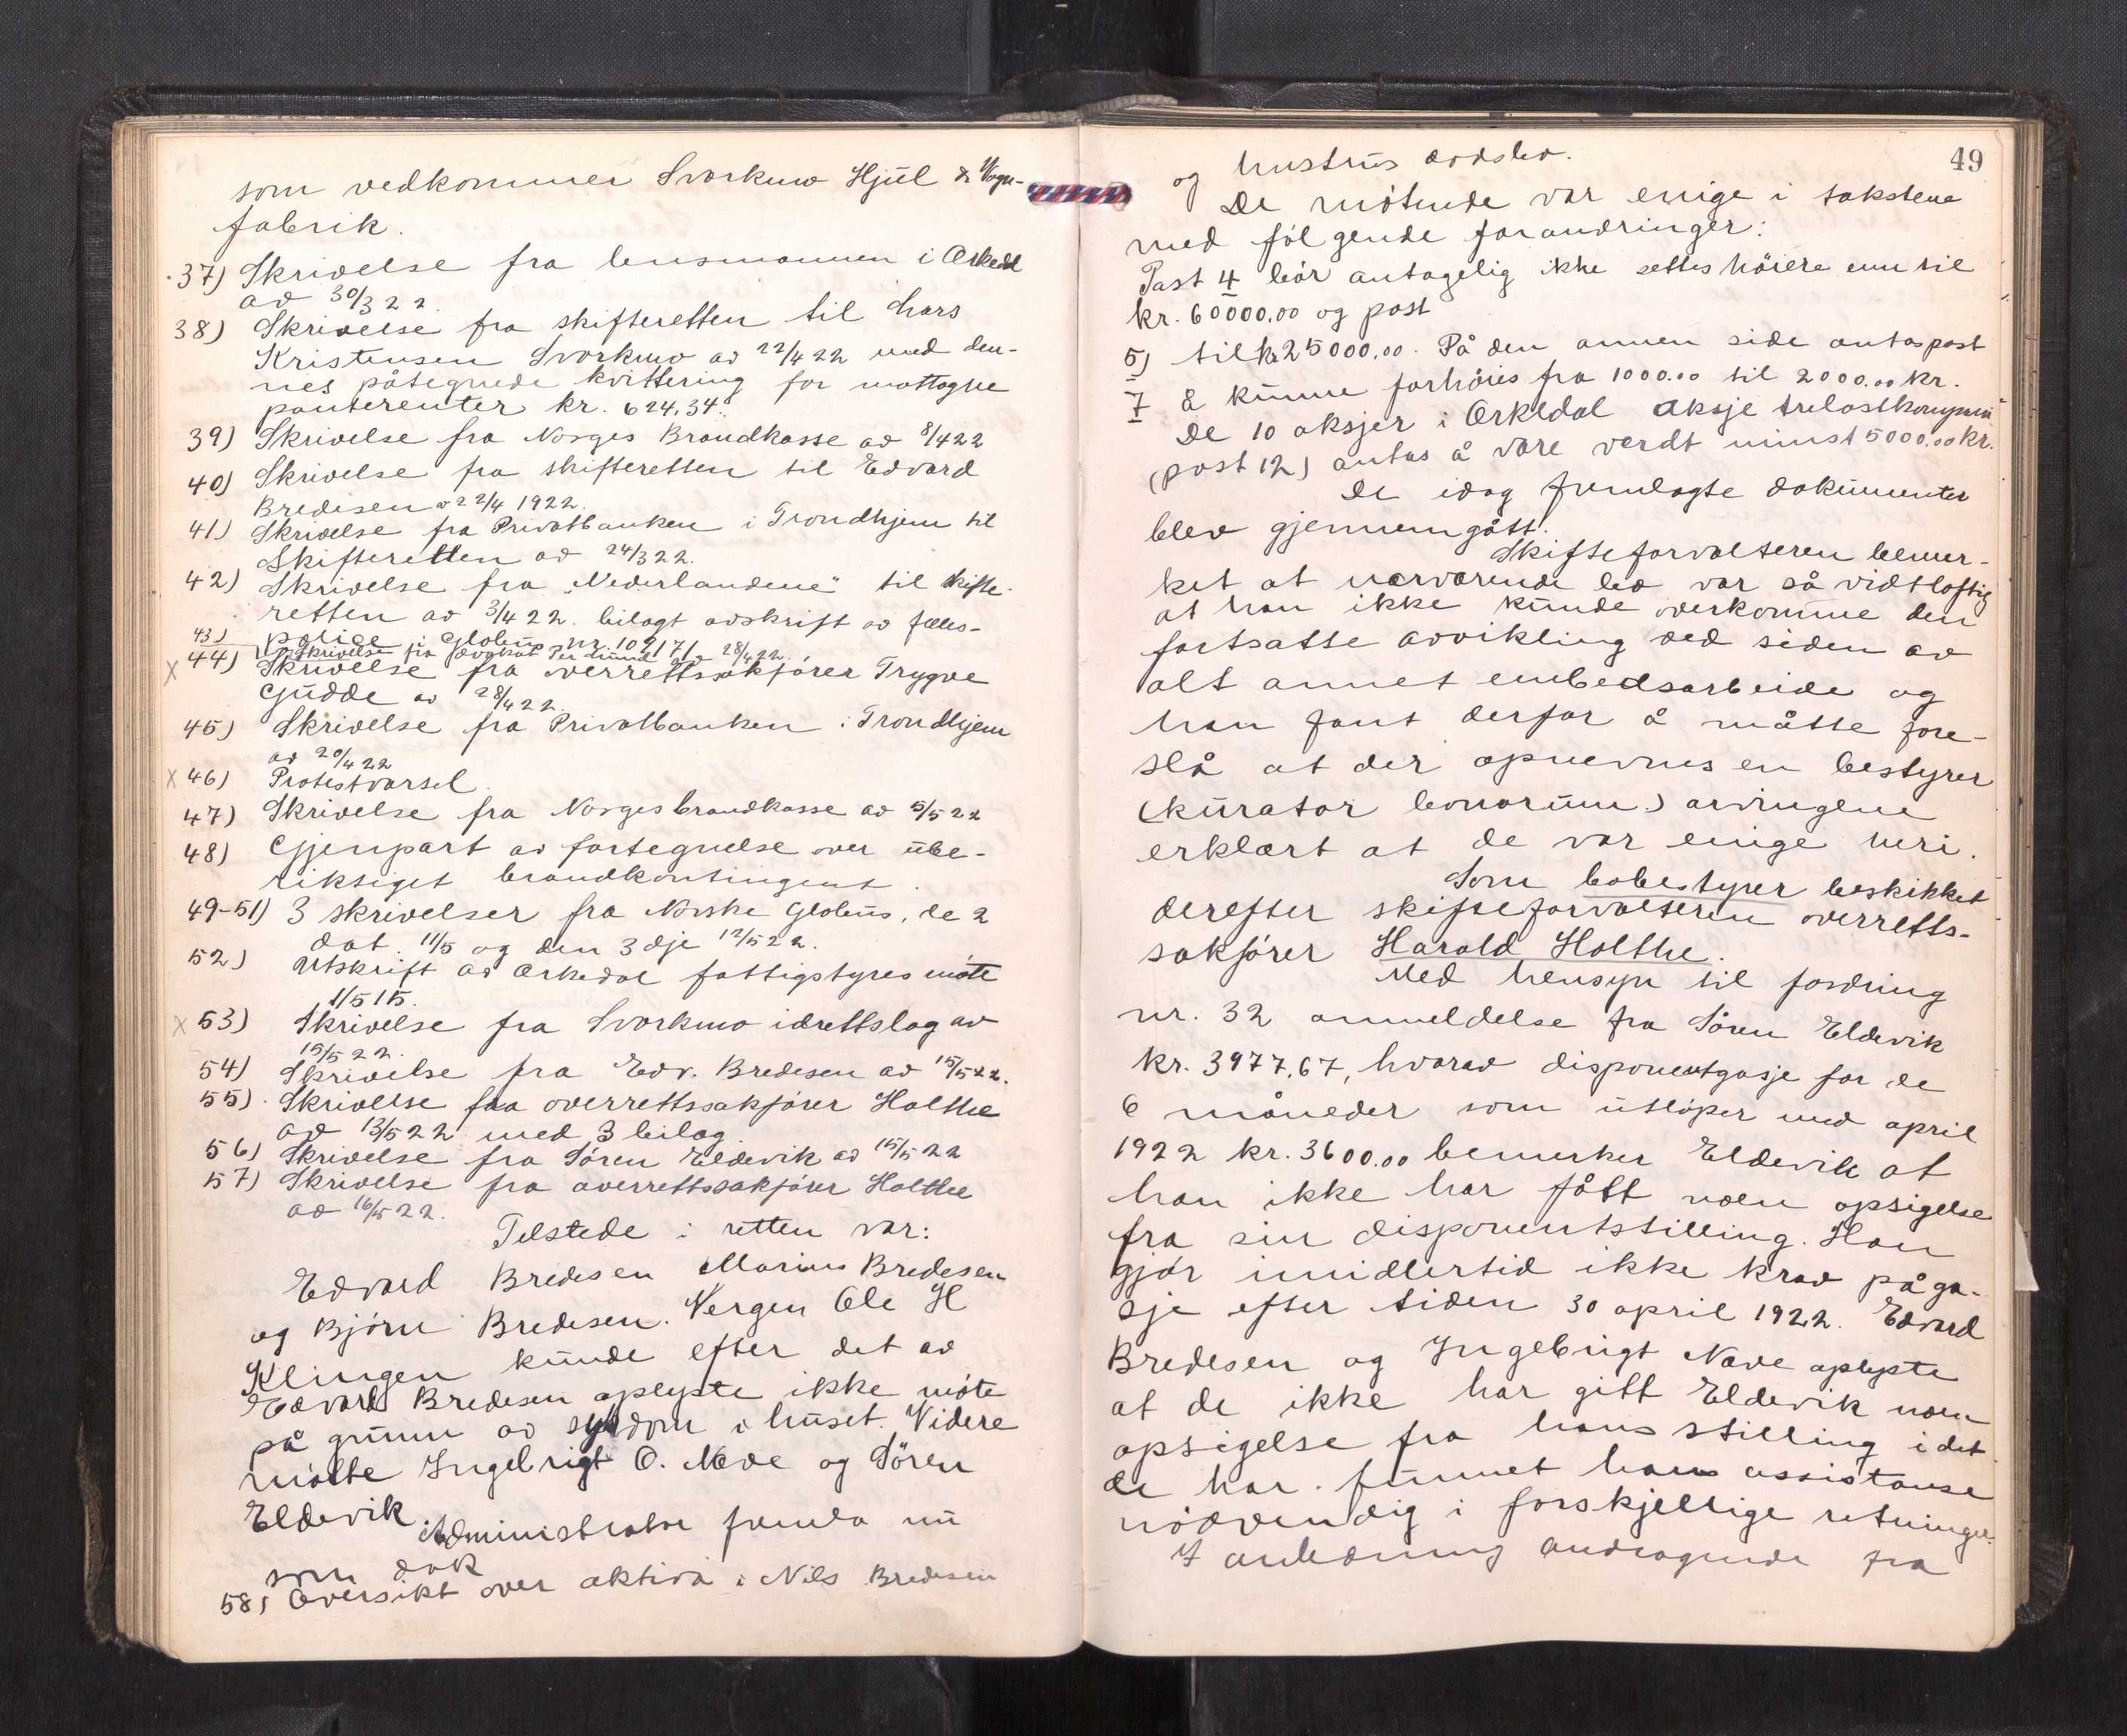 som vedkommer Svorkmo Hjul & Vogn-
fabrik.
37) Skrivelse fra lensmannen i Orkedal
av 30/3 22.
38) Skrivelse fra skifteretten til Lars
Kristensen Svorkmo av 22/4 22 med den-
nes påtegnede kvittering for mottagne
panterenter kr. 624,34.
39) Skrivelse fra Norges Brandkasse av 8/4 22
40) Skrivelse fra skifteretten til Edvard
Bredesen av 22/4 1922.
41) Skrivelse fra Privatbanken i Trondhjem til
Skifteretten av 24/3 22.
42) Skrivelse fra „Nederlandene" til skifte-
retten av 3/4 22. bilagt avskrift av felles-
police i Globus nr. 109171
43) Skrivelse fra advokat Per Lund av 28/4 22.
x 44) Skrivelse fra overrettssakfører Trygve
Gudde av 28/4 22.
45) Skrivelse fra Privatbanken i Trondhjem
av 20/4 22
x 46) Protestvarsel.
47) Skrivelse fra Norges brandkasse av 5/5 22
48) Gjenpart av fortegnelse over ube-
riktiget brandkontingent.
49-51) 3 skrivelser fra Norske Globus, de 2
dat. 11/5 og den 3dje 12/5 22.
52) Utskrift av Orkedal fattigstyres møte
1/5 15.
x 53) Skrivelse fra Svorkmo idrettslag av
15/5 22.
54) Skrivelse fra Edv. Bredesen av 15/5 22.
55) Skrivelse fra overrettssakfører Holthe
av 13/5 22 med 3 bilag.
56) Skrivelse fra Sören Eldevik av 15/5 22
57) Skrivelse fra overrettssakfører Holthe
av 16/5 22.
Tilstede i retten var:
Edvard Bredesen Marius Bredesen
og Bjørn Bredesen. Vergen Ole H
Klingen kunde efter det av
Edvard Bredesen oplyste ikke møte
på grunn av sykdom i huset. Videre
møtte Ingebrigt O. Nove og Sören
Eldevik.
Administrator fremla nu
som dok
58) Oversikt over aktiva i Nils Bredesen
49
og hustrus dødsbo.
De møtende var enige i takstene
med følgende forandringer:
Post 4 bør antagelig ikke settes høiere enn til
kr. 60000,00 og post
5) til kr 25000,00. På den annen side antas post
7 å kunne forhøies fra 1000.00 til 2000.00 kr.
De 10 aksjer i Orkedal Aksje trelastkompani
(post 12) antas å være verdt minst 5000,00 kr.
De idag fremlagte dokumenter
blev gjennemgått.
Skifteforvalteren bemer-
ket at nærværende bo var så vidtløftig
at han ikke kunde overkomme den
fortsatte avvikling ved siden av
alt annet embedsarbeide og
han fant derfor å måtte fore-
slå at der opnevnes en bestyrer
(kurator bonorum.) arvingene
erklært at de var enige heri.
Som bobestyrer beskikket
derefter skifteforvalteren overretts-
sakfører Harald Holthe.
Med hensyn til fordring
nr. 32 anmeldelse fra Sören Eldevik
kr. 3977,67, hvorav disponentgasje for de
6 måneder som utløper med april
1922 kr. 3600.00 bemerker Eldevik at
han ikke har fått noen opsigelse
fra sin disponentstilling. Han
gjør imidlertid ikke krav på ga-
sje efter tiden 30 april 1922. Edvard
Bredesen og Ingebrigt Nove oplyste
at de ikke har gitt Eldevik noen
opsigelse fra hans stilling i det
de har funnet hans assistanse
nødvendig i forskjellige retninger.
I anledning andragende fra